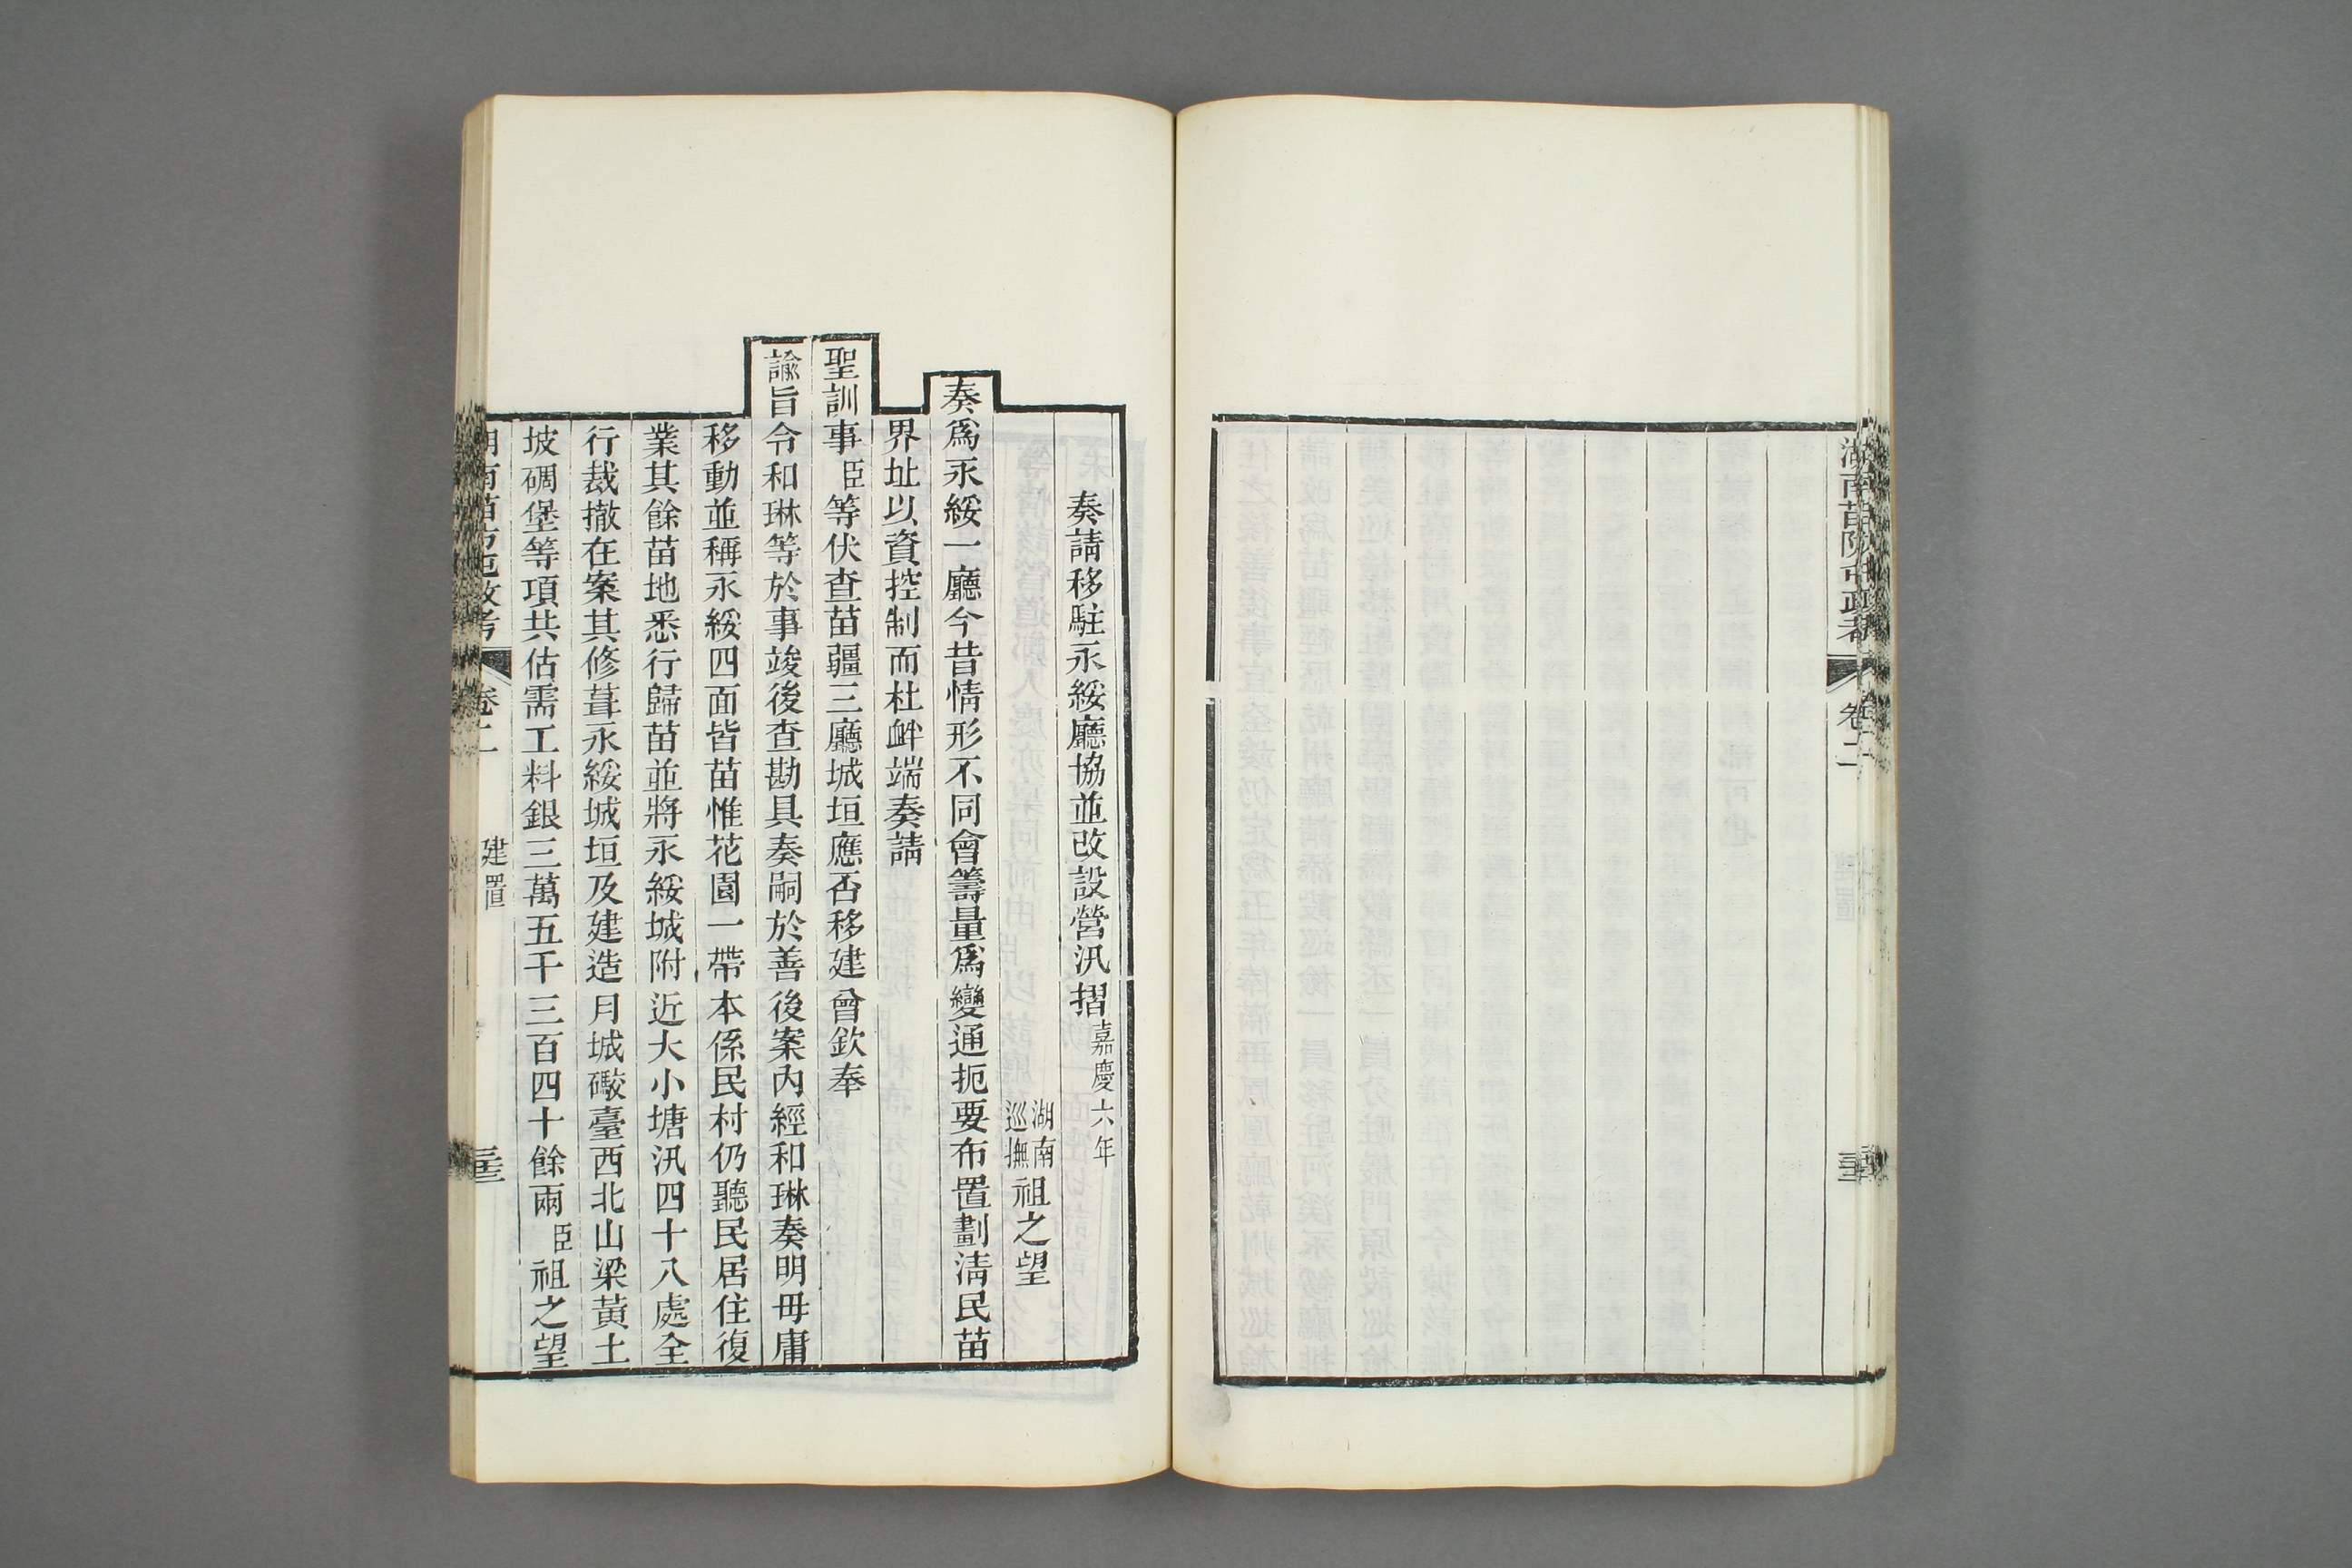 湖南苗防屯政考 卷二
奏請移駐永綏廳協並改設營汛摺嘉慶六年
湖南巡撫祖之望
奏爲永綏一廳今昔情形不同會籌量爲變通扼要布置劃清民苗
界址以資控制而杜衅端奏請
聖訓事臣等伏查苗疆三廳城垣應否移建曾欽奉
諭旨令和琳等於事竣後查勘具奏嗣於善後案內經和琳奏明毋庸
移動並稱永綏四面皆苗惟花園一帶本係民村仍聽民居住復
業其餘苗地悉行歸苗並將永綏城附近大小塘汛四十八處全
行裁撤在案其修葺永綏城垣及建造月城礮臺西北山梁黃土
坡碉堡等項共估需工料銀三萬五千三百四十餘兩臣祖之望
湖南苗防屯政考 卷二 建置